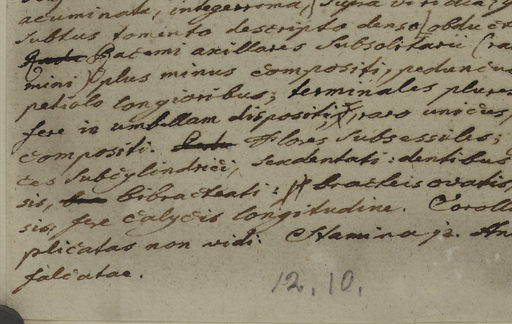 acuminata, integerroma, supra viridia
subtus tomento descripto denso obducta
Racemi axillares subsolitarii (ra
mini) plus minus compositi, peduncu
petiolo longioribus; terminales plures
fere in umbellam dispositi, raro unicus,
compositi. Flores subsessiles;
ces subcylindrici, sexdentati: dentibus
sis, bibracteati: bracteis ovatis,
sis, fere calycis longitudine. Coroll
plicatas non vidi. Stamina 12. An
falcatae.
12.10.